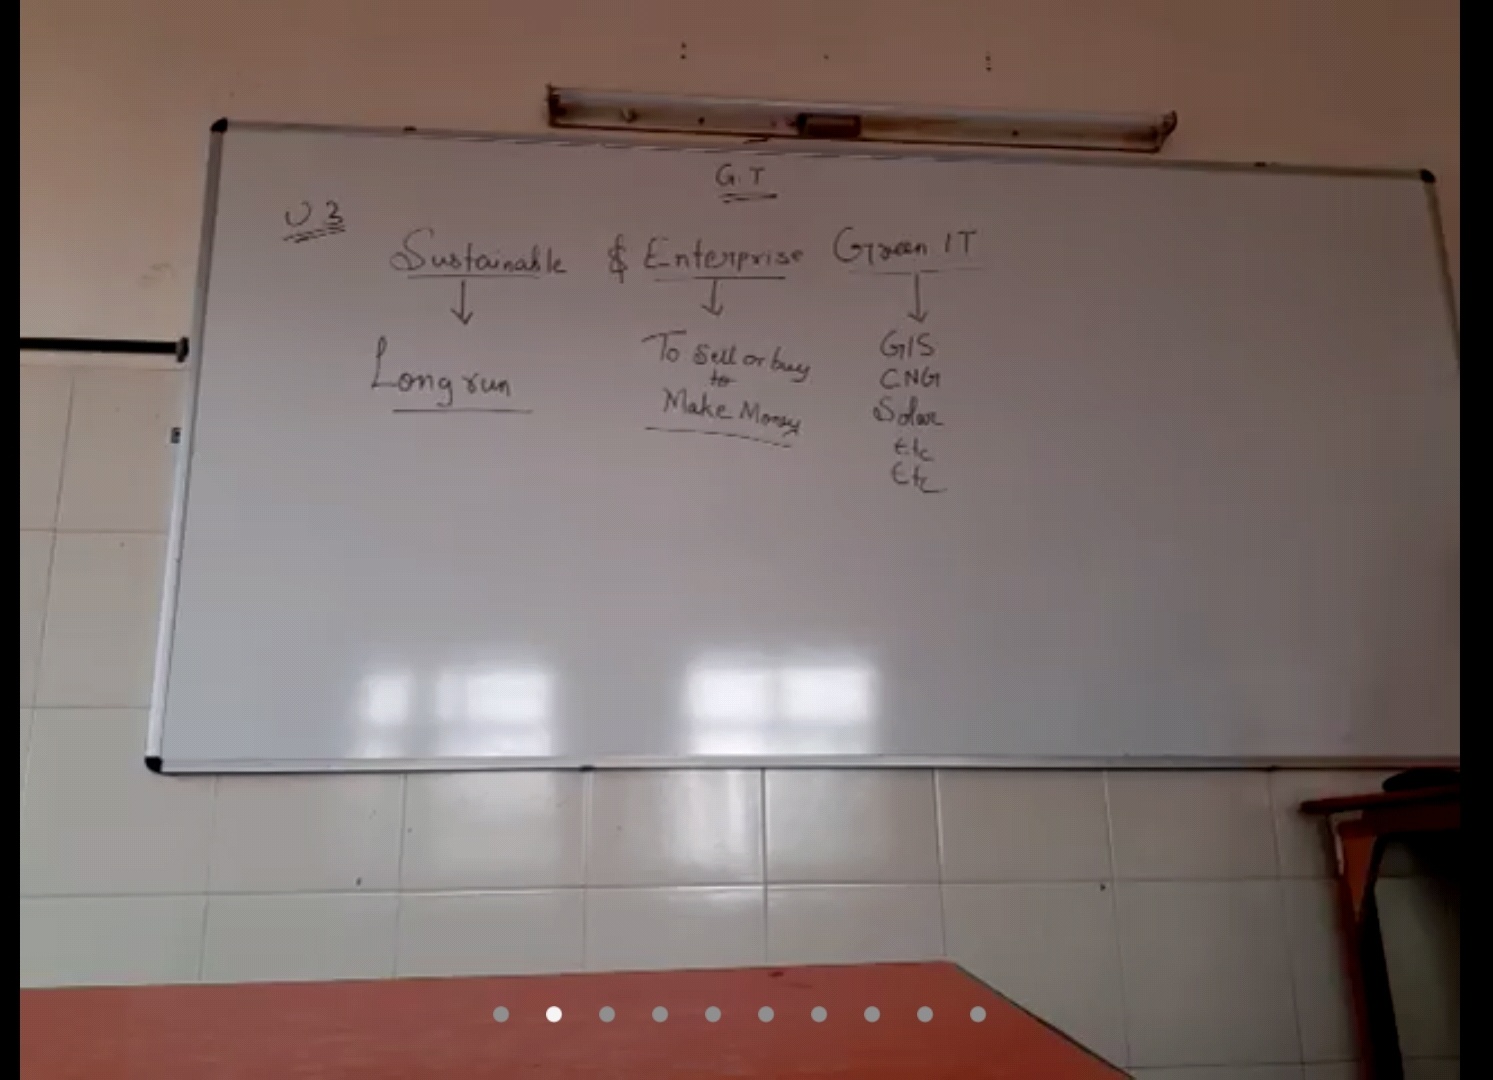 G.T
U 3
Sustainable & Enterprise Green IT
Long run
To Sell or buy
to
Make Money
GIS
CNG
Solar
Etc
Etc